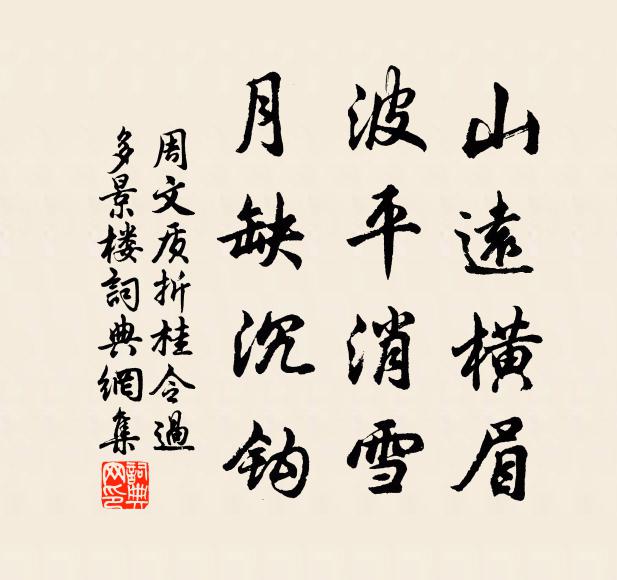 山遠橫眉
波平消雪
月缺沉鈎
周文质折桂令過
多景楼詞典網集
詞典网印